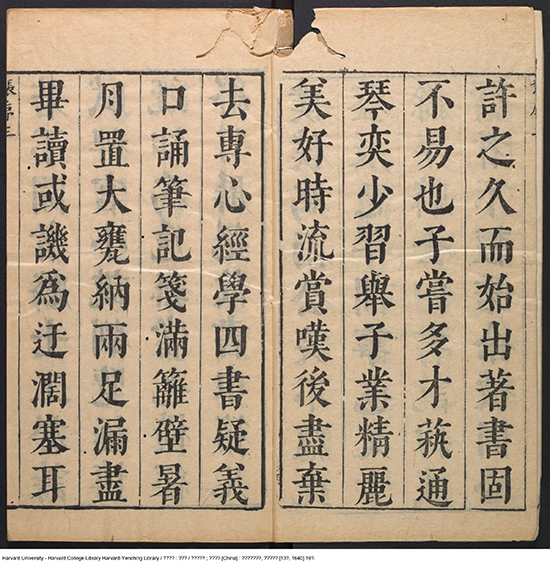 許之久而始出著書固
不易也子嘗多才蓺通
琴奕少習舉子業精麗
美好時流賞嘆後盡棄
去專心經學四書疑義
口誦筆記箋滿籬壁暑
月置大甕納兩足漏盡
畢讀或譏為迂濶塞耳
Harvard University - Harvard College Library Harvard-Yenching Library / ???? : ??? / ????? ; ???? [China] : ???????, ????? [13?, 1640] 18?.